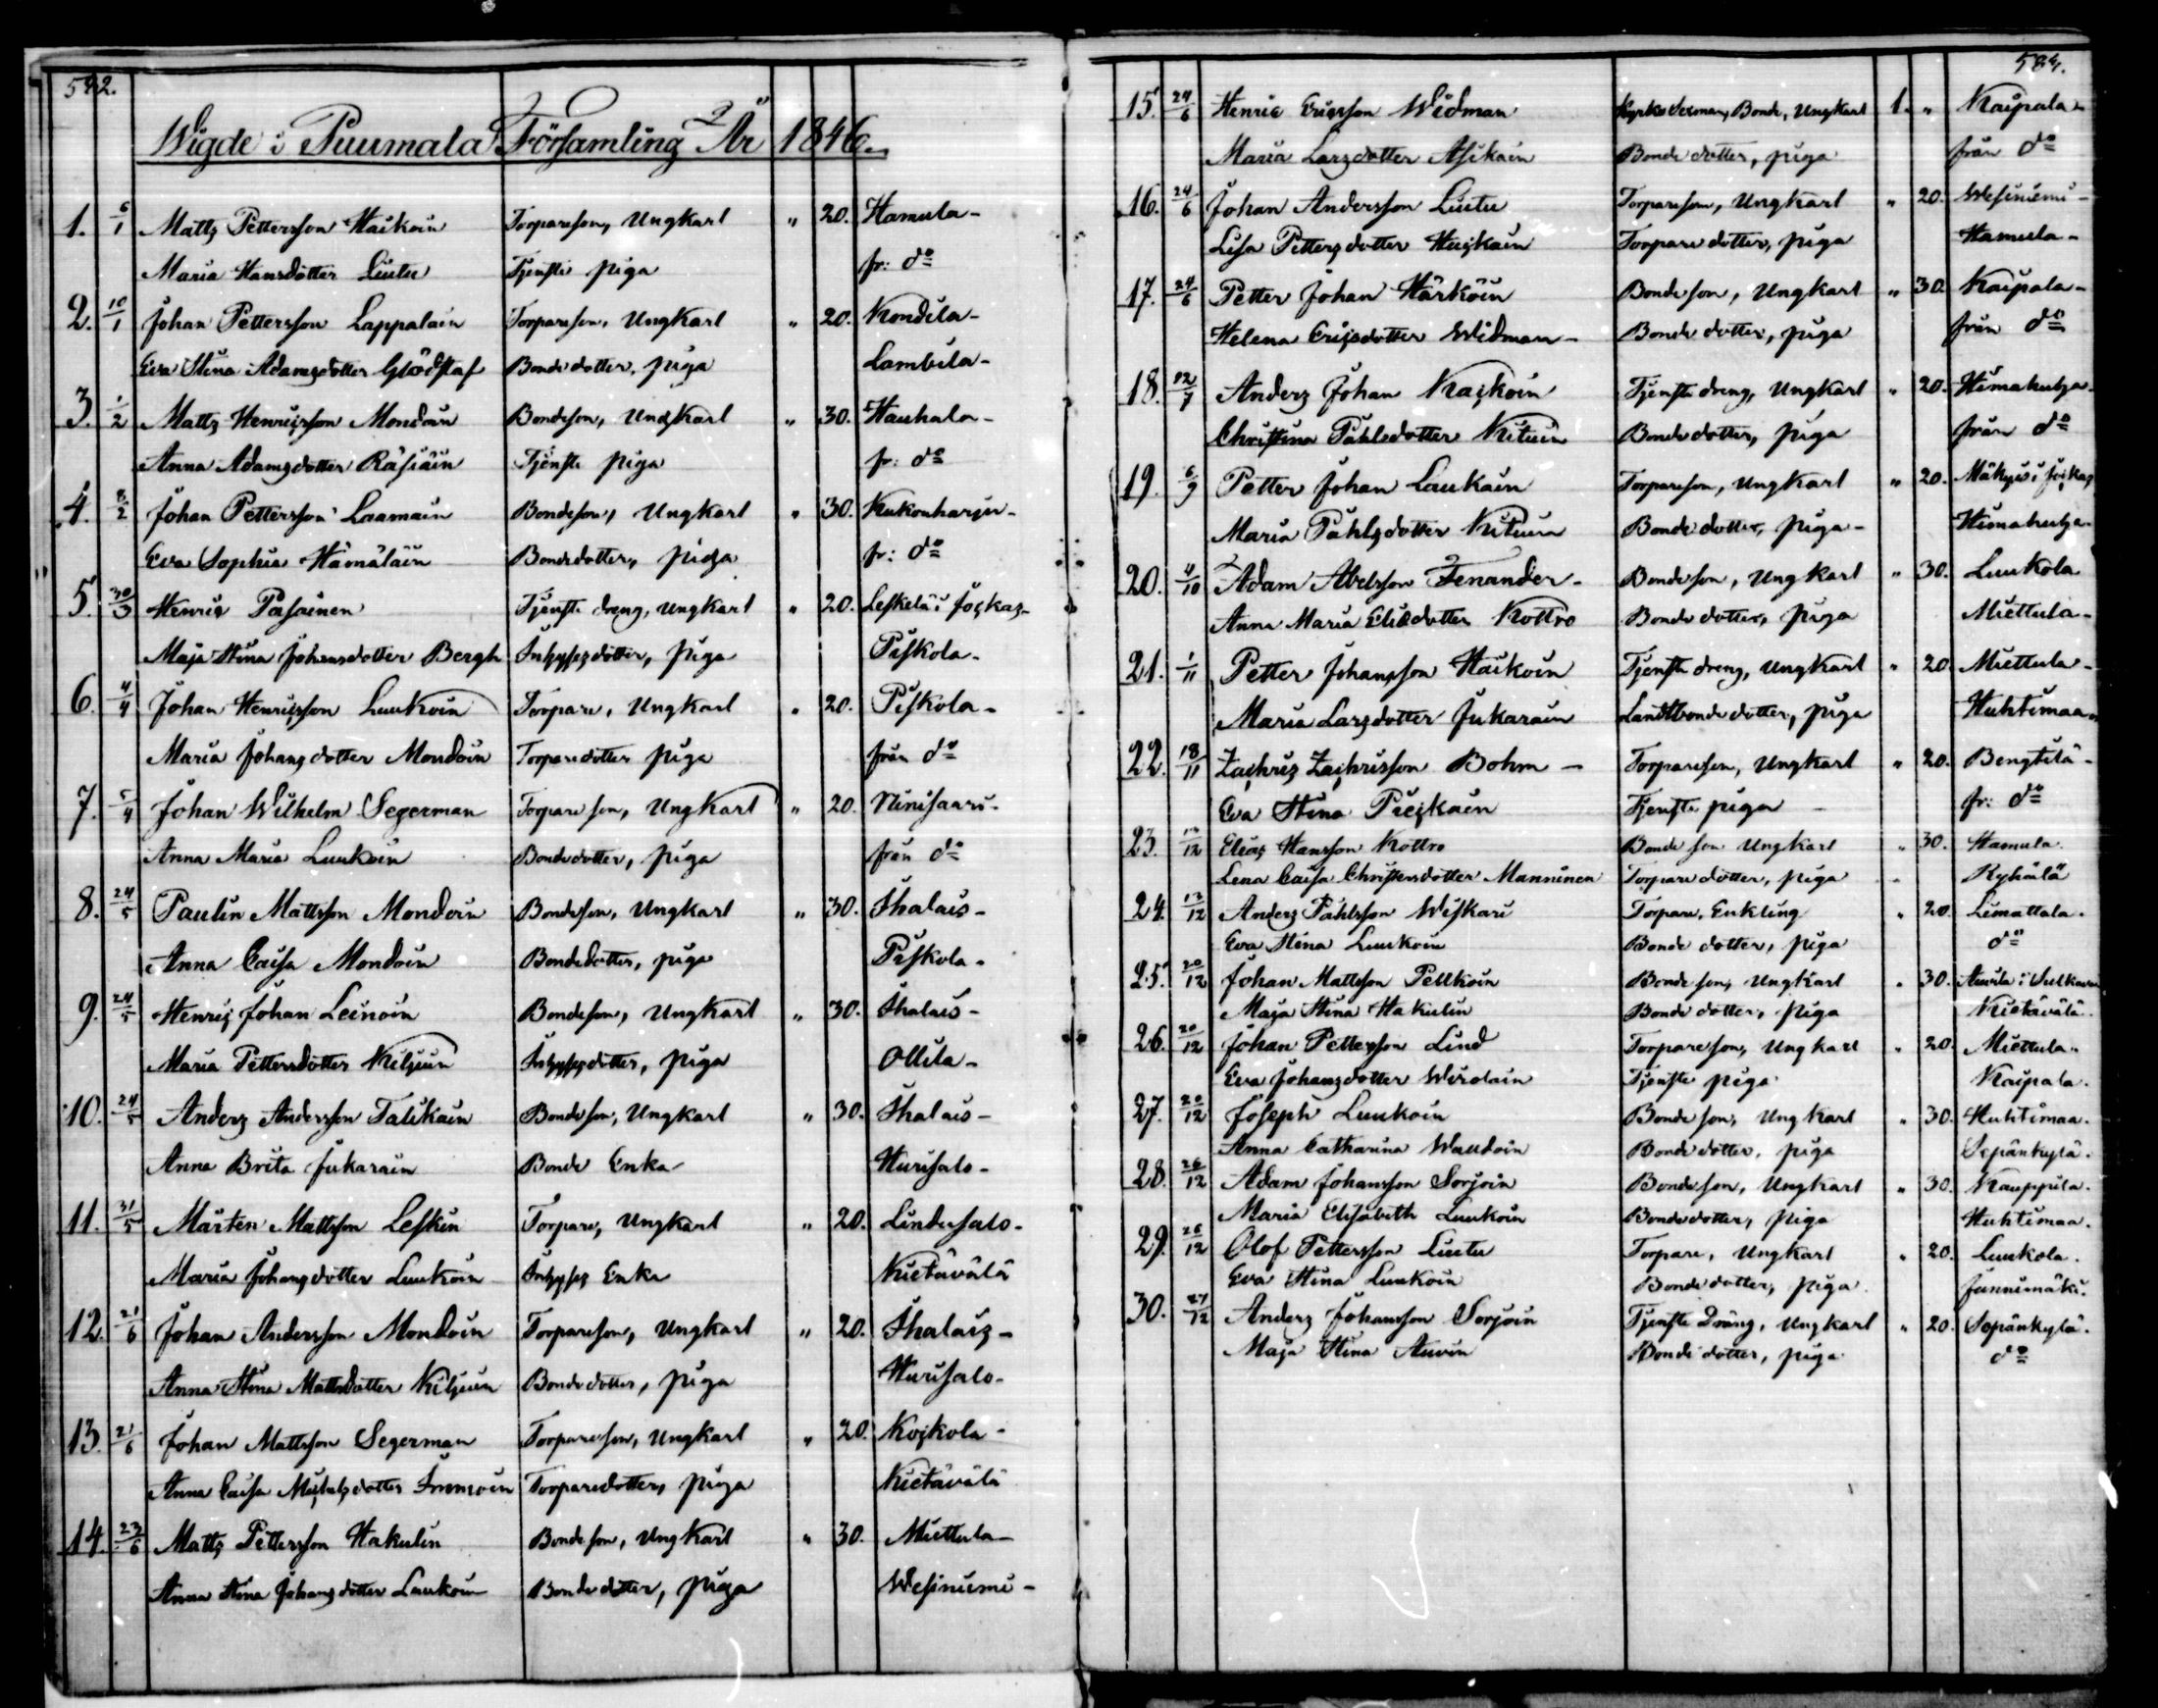 592.
Wigde i Puumala Församling År 1846.
1. 6/1 Matts Pettersson Haikoin Torpareson, Ungkarl " 20. Hamula-
Maria Hansdotter Liutu Tjenste piga fr: do
2. 10/1 Johan Pettersson Lappalain Torpareson, Ungkarl " 20. Kondila-
Eva Stina Adamsdotter Glödstaf Bondedotter, piga Lambila-
3. 1/2 Matts Henricsson Mondoin Bondeson, Ungkarl " 30. Hauhala-
Anna Adamsdotter Räsiäin Tjenste piga fr: do
4. 8/2 Johan Pettersson Laamain Bondeson, Ungkarl " 30. Kukonharju-
Eva Sophia Hämäläin Bondedotter, piga fr: do
5. 30/3 Henric Pasainen Tjenste dreng, Ungkarl " 20. Leskelä i Jockas-
Maja Stina Johansdotter Bergh Inhysesdotter, piga Piskola-
6. 4/4 Johan Henricsson Luukoin Torpare, Ungkarl " 20. Piskola-
Maria Johansdotter Mondoin Torparedotter piga från do
7. 5/4 Johan Wilhelm Segerman Torpareson, Ungkarl " 20. Ninisaari-
Anna Maria Luukoin Bondedotter, piga från do
8. 24/5 Paulin Mattsson Mondoin Bondeson, Ungkarl " 30. Ihalais-
Anna Caisa Mondoin Bondedotter, piga Piskola-
9. 24/5 Henric Johan Leinoin Bondeson, Ungkarl " 30. Ihalais-
Maria Pettersdotter Kiljuin Inhysesdotter, piga Ollila-
10. 24/5 Anders Andersson Talikain Bondeson, Ungkarl " 30. Ihalais-
Anna Brita Jukarain Bonde Enka Hurisalo-
11. 31/5 Mårten Mattsson Leskin Torpare, Ungkarl " 20. Lindusalo-
Maria Johansdotter Luukoin Inhyses Enka Kietävälä
12. 21/6 Johan Andersson Mondoin Torpareson, Ungkarl " 20. Ihalais-
Anna Stina Mattsdotter Kiljuin Bondedotter, piga Hurisalo-
13. 21/6 Johan Mattsson Segerman Torpareson, Ungkarl " 20. Koskola-
Anna Caisa Michelsdotter Immoin Torparedotter, piga Kietävälä
14. 23/6 Matts Pettersson Hakulin Bondeson, Ungkarl " 30. Miettula-
Anna Stina Johansdotter Luukoin Bondedotter, piga Wesiniemi-
584.
15. 24/6 Henric Ericsson Widman Kyrko Sexman, Bonde, Ungkarl 1. " Kaipala-
Maria Larsdotter Asikain Bondedotter, piga från do
16. 24/6 Johan Andersson Liutu Torpareson, Ungkarl " 20. Wesiniemi-
Lisa Pettersdotter Huskain Torparedotter, piga Hamula-
17. 24/6 Petter Johan Härköin Bondeson, Ungkarl " 30. Kaipala-
Helena Ericsdotter Widman- Bonde dotter, piga från do
18. 12/7 Anders Johan Kaskoin Tjenste dreng, Ungkarl " 20. Himahutza-
Christina Påhlsdotter Kituin Bondedotter, piga från do
19. 6/9 Petter Johan Laukain Torpareson, Ungkarl " 20. Mäkyis i Jockas
Maria Påhlsdotter Kituin Bonde dotter, piga- Himahutza-
20. 4/10 Adam Abelsson Tenander- Bondeson, Ungkarl " 30. Luukola
Anna Maria Eliedotter Kottro Bondedotter, piga Miettula-
21. 1/11 Petter Johansson Haikoin Tjenste dreng, Ungkarl " 20. Miettula-
Maria Larsdotter Jukarain Landtbonde dotter, piga Huhtimaa-
22. 18/11 Zachris Zachrisson Bohm- Torpareson, Ungkarl " 20. Bengtilä-
Eva Stina Pieskain Tjenste piga fr: do
23. 13/12 Elias Hansson Kottro Bonde son Ungkarl " 30. Hamula.
Lena Caisa Christersdotter Manninen Torpare dotter, piga Ryhälä
24. 13/12 Anders Påhlsson Wiskari Torpare, Enkling " 20. Limattala.
Eva Stina Luukoin Bonde dotter, piga do
25. 20/12 Johan Mattsson Pellkoin Bonde son, Ungkarl " 30. Auvila i Sulkava
Maja Stina Hakulin Bonde dotter, piga Kietävälä.
26. 20/12 Johan Pettersson Lind Torpareson, Ungkarl " 20. Miettula.
Eva Johansdotter Wirolain Tjenste piga Kaipala.
27. 20/12 Joseph Luukoin Bondeson, Ungkarl " 30. Huhtimaa.
Anna Catharina Wandoin Bondedotter, piga Sepänkylä.
28. 26/12 Adam Johansson Sorjoin Bondeson, Ungkarl " 30. Kauppila.
Maria Elisabeth Luukoin Bondedotter, piga Huhtimaa.
29. 26/12 Olof Pettersson Liutu Torpare, Ungkarl " 20. Luukola.
Eva Stina Luukoin Bonde dotter, piga Junnimäki.
30. 27/12 Anders Johansson Sorjoin Tjenste Dräng, Ungkarl " 20. Sepänkylä.
Maja Stina Auvin Bonde dotter, piga do